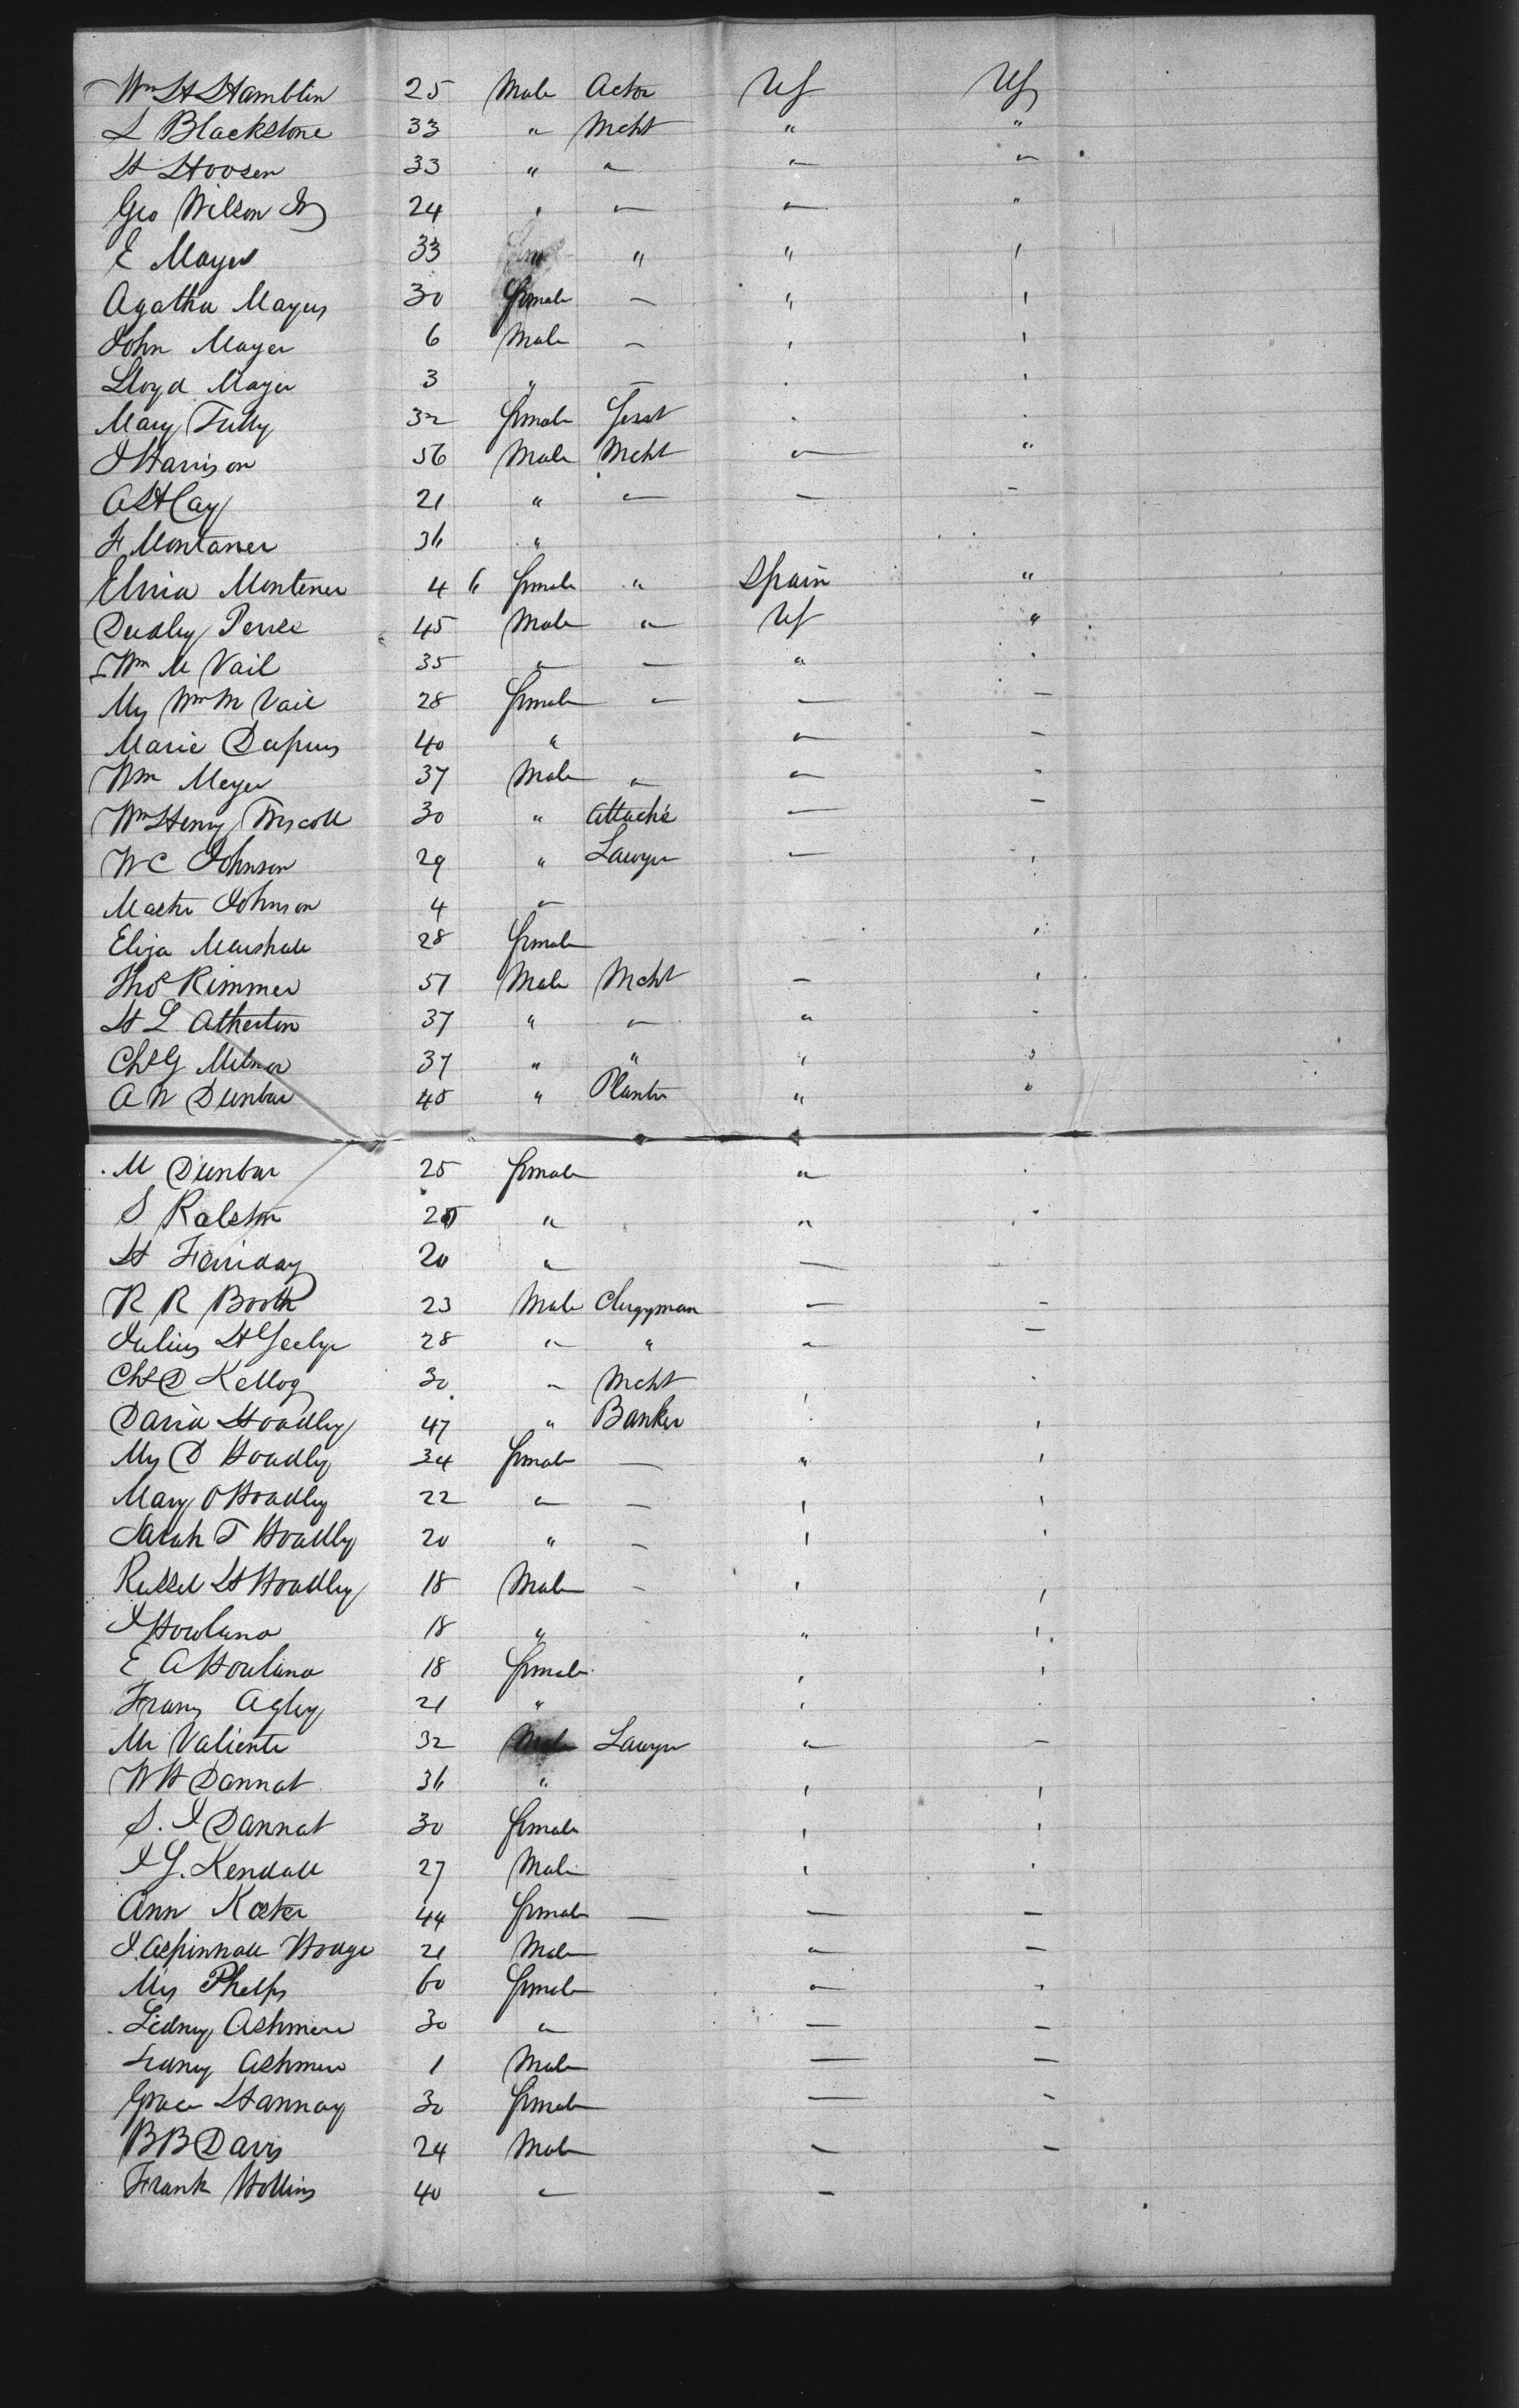 Wm H Hamblin 25 Male Actor US US
L Blackstone 33 " Mcht " "
H Hoosen 33 " " " "
Geo Wilson Jr 24 " " " "
E Mayer 33 " " " "
Agatha Mayer 30 female — " "
John Mayer 6 Male — " "
Lloyd Mayer 3 " — " "
Mary Tully 32 female Servt " "
J Harrison 56 Male Mcht " "
A H Cay 21 " " " "
F Montaner 36 "
Elvira Montener 4 6 female " Spain "
Dudley 45 Male " US "
Wm M Vail 35 " — " "
Mrs Wm M Vail 28 female " — —
Marie Dupuis 40 " " —
Wm Meyer 37 Male " " "
Wm Henry 30 " Attaché — —
W C Johnson 29 " Lawyer — "
Master Johnson 4 "
Eliza Marshall 28 female "
Thos Rimmer 51 Male Mcht — "
H L Atherton 37 " " " "
Chs G Milnor 37 " " " "
A W Dunbar 48 " Planter " "
M Dunbar 25 female " "
S Ralston 25 " " "
H Farriday 20 " —
R R Booth 23 Male Clergyman — —
Julius H Seelye 28 " " " —
Chs D Kellog 30 " Mcht "
David Hoadley 47 " Banker " "
Mrs D Hoadly 34 female — " "
Mary O Hoadley 22 " — " "
Sarah T Hoadly 20 " — " "
Russel H Hoadley 18 Male — " "
J Howland 18 " " "
E A Howland 18 female " "
Agley 21 " "
Mr Valiente 32 Male Lawyer " —
W H Dannat 36 " " "
S. J Dannat 30 female " "
J G. Kendall 27 Male " "
Ann Koster 44 female — — —
J. Aspinwall Hodge 21 Male " —
Mrs Phelps 60 female " "
Sidney Ashmore 30 " — —
Ashmore 1 Male — —
Grace Hannay 30 female — —
B B Davis 24 Male — —
Frank Hollins 40 " —